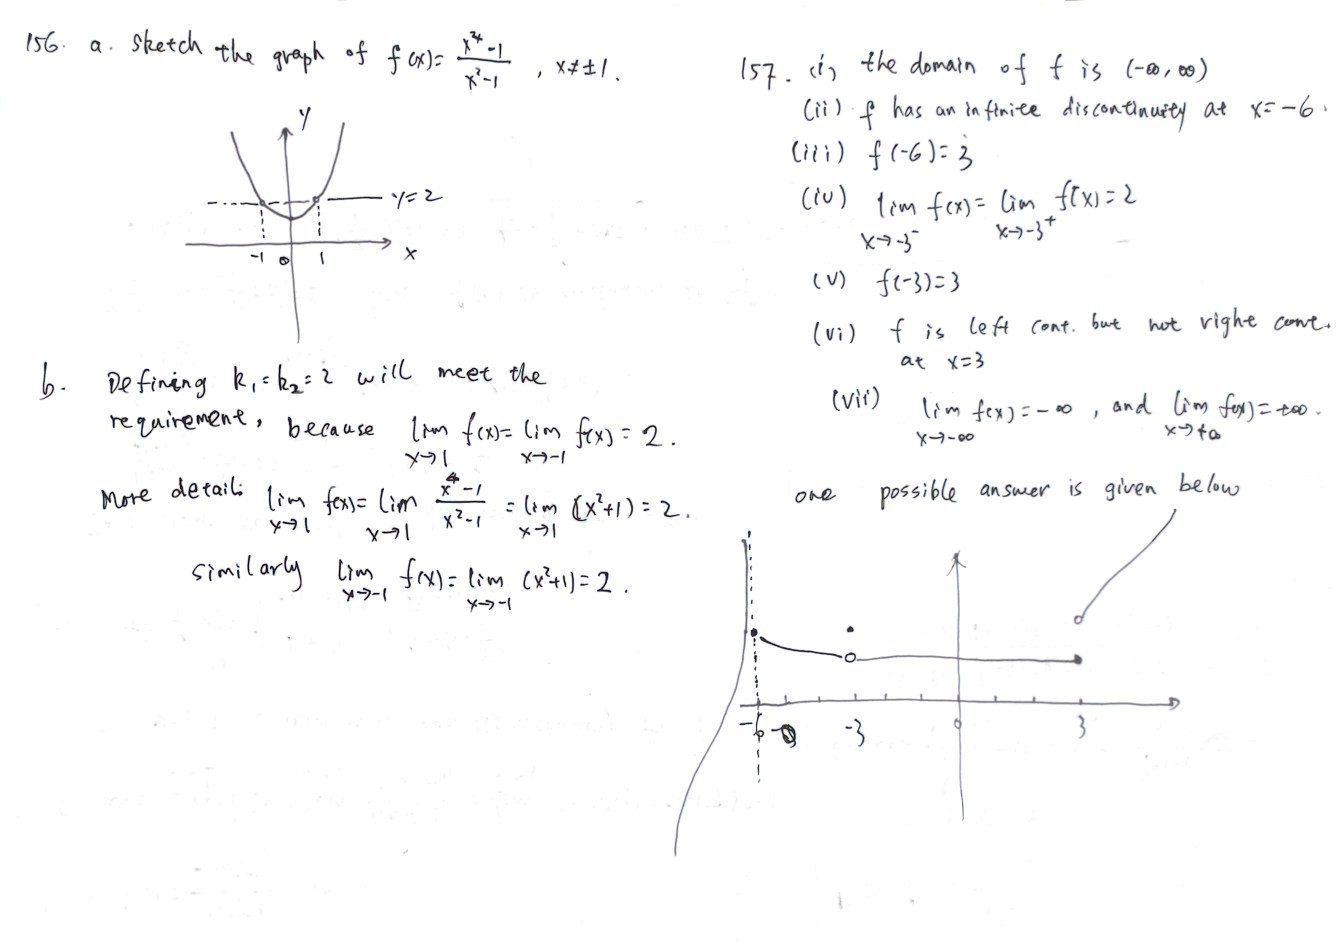 156. a. Sketch the graph of f(x)= (x⁴-1)/(x²-1) , x≠±1.
y
y=2
-1 0 1 x
b. Defining k₁=k₂=2 will meet the
requirement, because lim x→1 f(x)= lim x→-1 f(x)=2.
More detail: lim x→1 f(x)= lim x→1 (x⁴-1)/(x²-1) = lim x→1 (x²+1)=2.
similarly lim x→-1 f(x)= lim x→-1 (x²+1)=2.
157. (i) the domain of f is (-∞,∞)
(ii) f has an infinite discontinuity at x=-6.
(iii) f(-6)=3
(iv) lim x→-3⁻ f(x)= lim x→-3⁺ f(x)=2
(v) f(-3)=3
(vi) f is left cont. but not right cont.
at x=3
(vii) lim x→-∞ f(x)=-∞, and lim x→+∞ f(x)=+∞.
one possible answer is given below
-6 -3 0 3